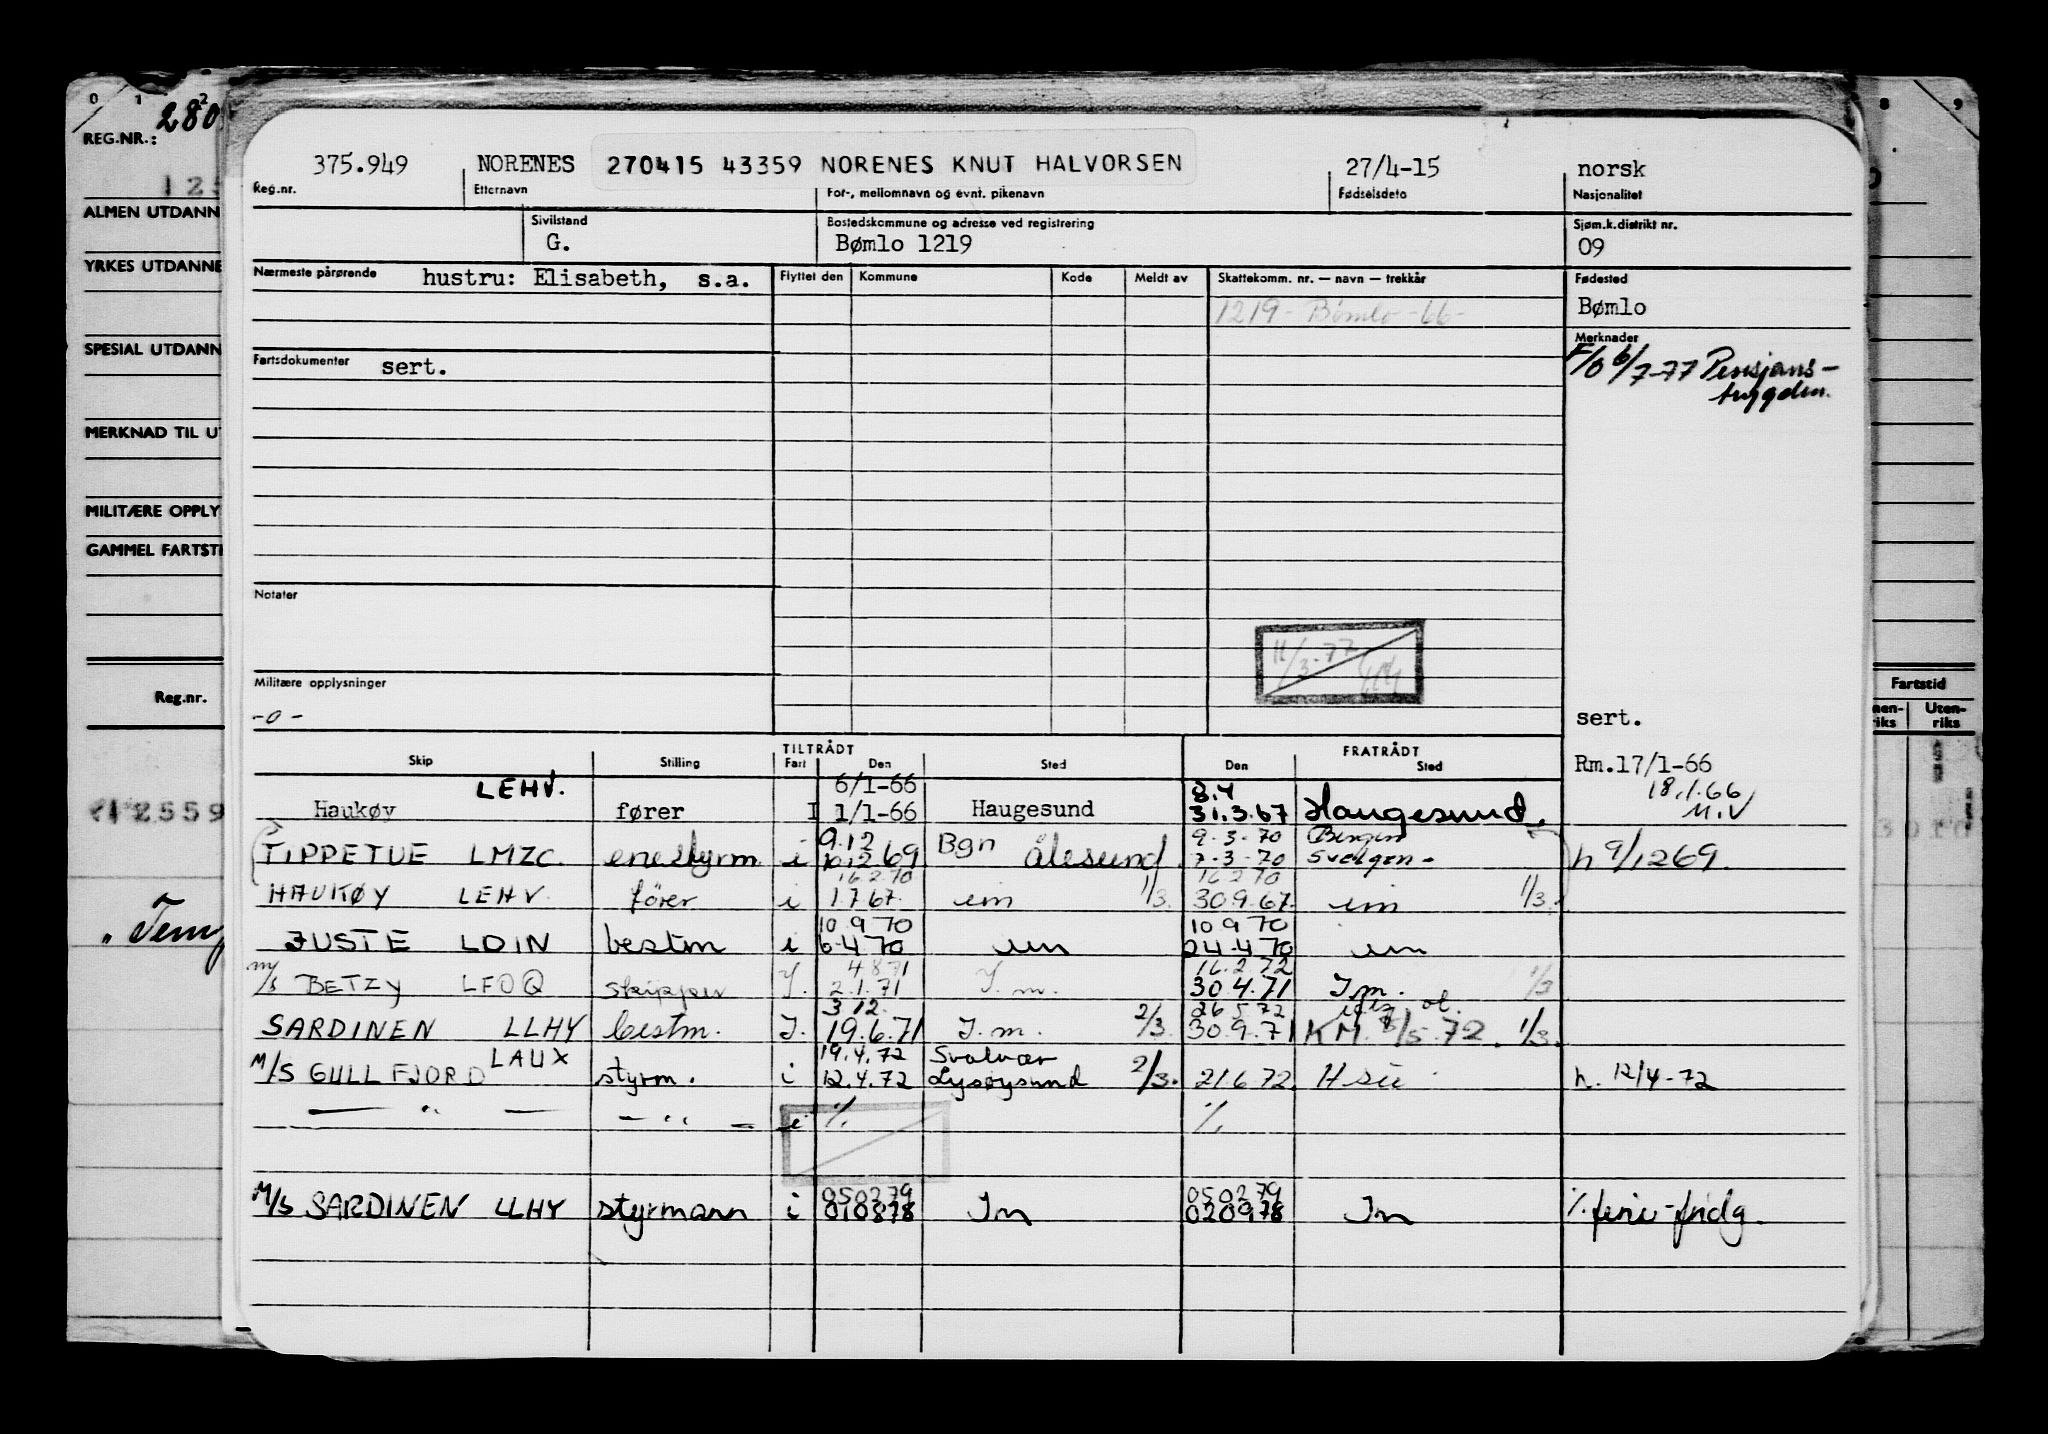 0 1 2
280
REG.NR.:
ALMEN UTDANN
YRKES UTDANNE
SPESIAL UTDANN
MERKNAD TIL U
MILITÆRE OPPLY
GAMMEL FARTSTI
Reg.nr.
2559
8 9
Fartstid
Uten-
riks
375.949 NORENES 270415 43359 NORENES KNUT HALVORSEN 27/4-15 norsk
Reg.nr. Etternavn For-, mellomnavn og evnt. pikenavn Fødselsdato Nasjonalitet
Sivilstand Bostedskommune og adresse ved registrering Sjøm.k.distrikt nr.
G. Bømlo 1219 09
Nærmeste pårørende hustru: Elisabeth, s.a. Flyttet den Kommune Kode Meldt av Skattekomm. nr. — navn — trekkår Fødested
1219 - Bømlo - 66 - Bømlo
Merknader
F/O 6/7-77 Pensjons-
trygden.
Fartsdokumenter sert.
Notater
11/3-77
Militære opplysninger
-0-
sert.
TILTRÅDT FRATRÅDT
Skip Stilling Fart Den Sted Den Sted
Rm.17/1-66
LEHV. 6/1-66 8.4 18.1.66
Haukøy fører I 1/1-66 Haugesund 31.3.67 Haugesund. M.V
9.12 Bgn 9-3-70 Bergen
TIPPETUE LMZC. enestyrm. i 10.12.69 Ålesund 7-3-70 Svelgen - h 9/1269.
16.2.70 16.2.70
HAUKØY LEHV. fører i 1.7.67. im 1/3. 30.9.67. im 1/3.
10.9.70 10.9.70
JUSTE LDIN bestm i 6.4.70 im 24.4.70 im
4.8.71 16.2.72
m/s BETZY LFOQ skipper I. 2.1.71 I.m. 30.4.71 I.m. 1/3
3.12. 26.5.72
SARDINEN LLHY bestm. I. 19.6.71 I.m. 2/3. 30.9.71 KM. 8/5.72. 1/3.
LAUX 19.4.72 Svolvær
M/S GULLFJORD styrm. i 12.4.72 Lysøysund 2/3. 21.6.72. h. 12/4-72
— " — — " — i % %
050279 050279
M/S SARDINEN LLHY styrmann i 010878 Im 020978 Im %. ferie-fridg.